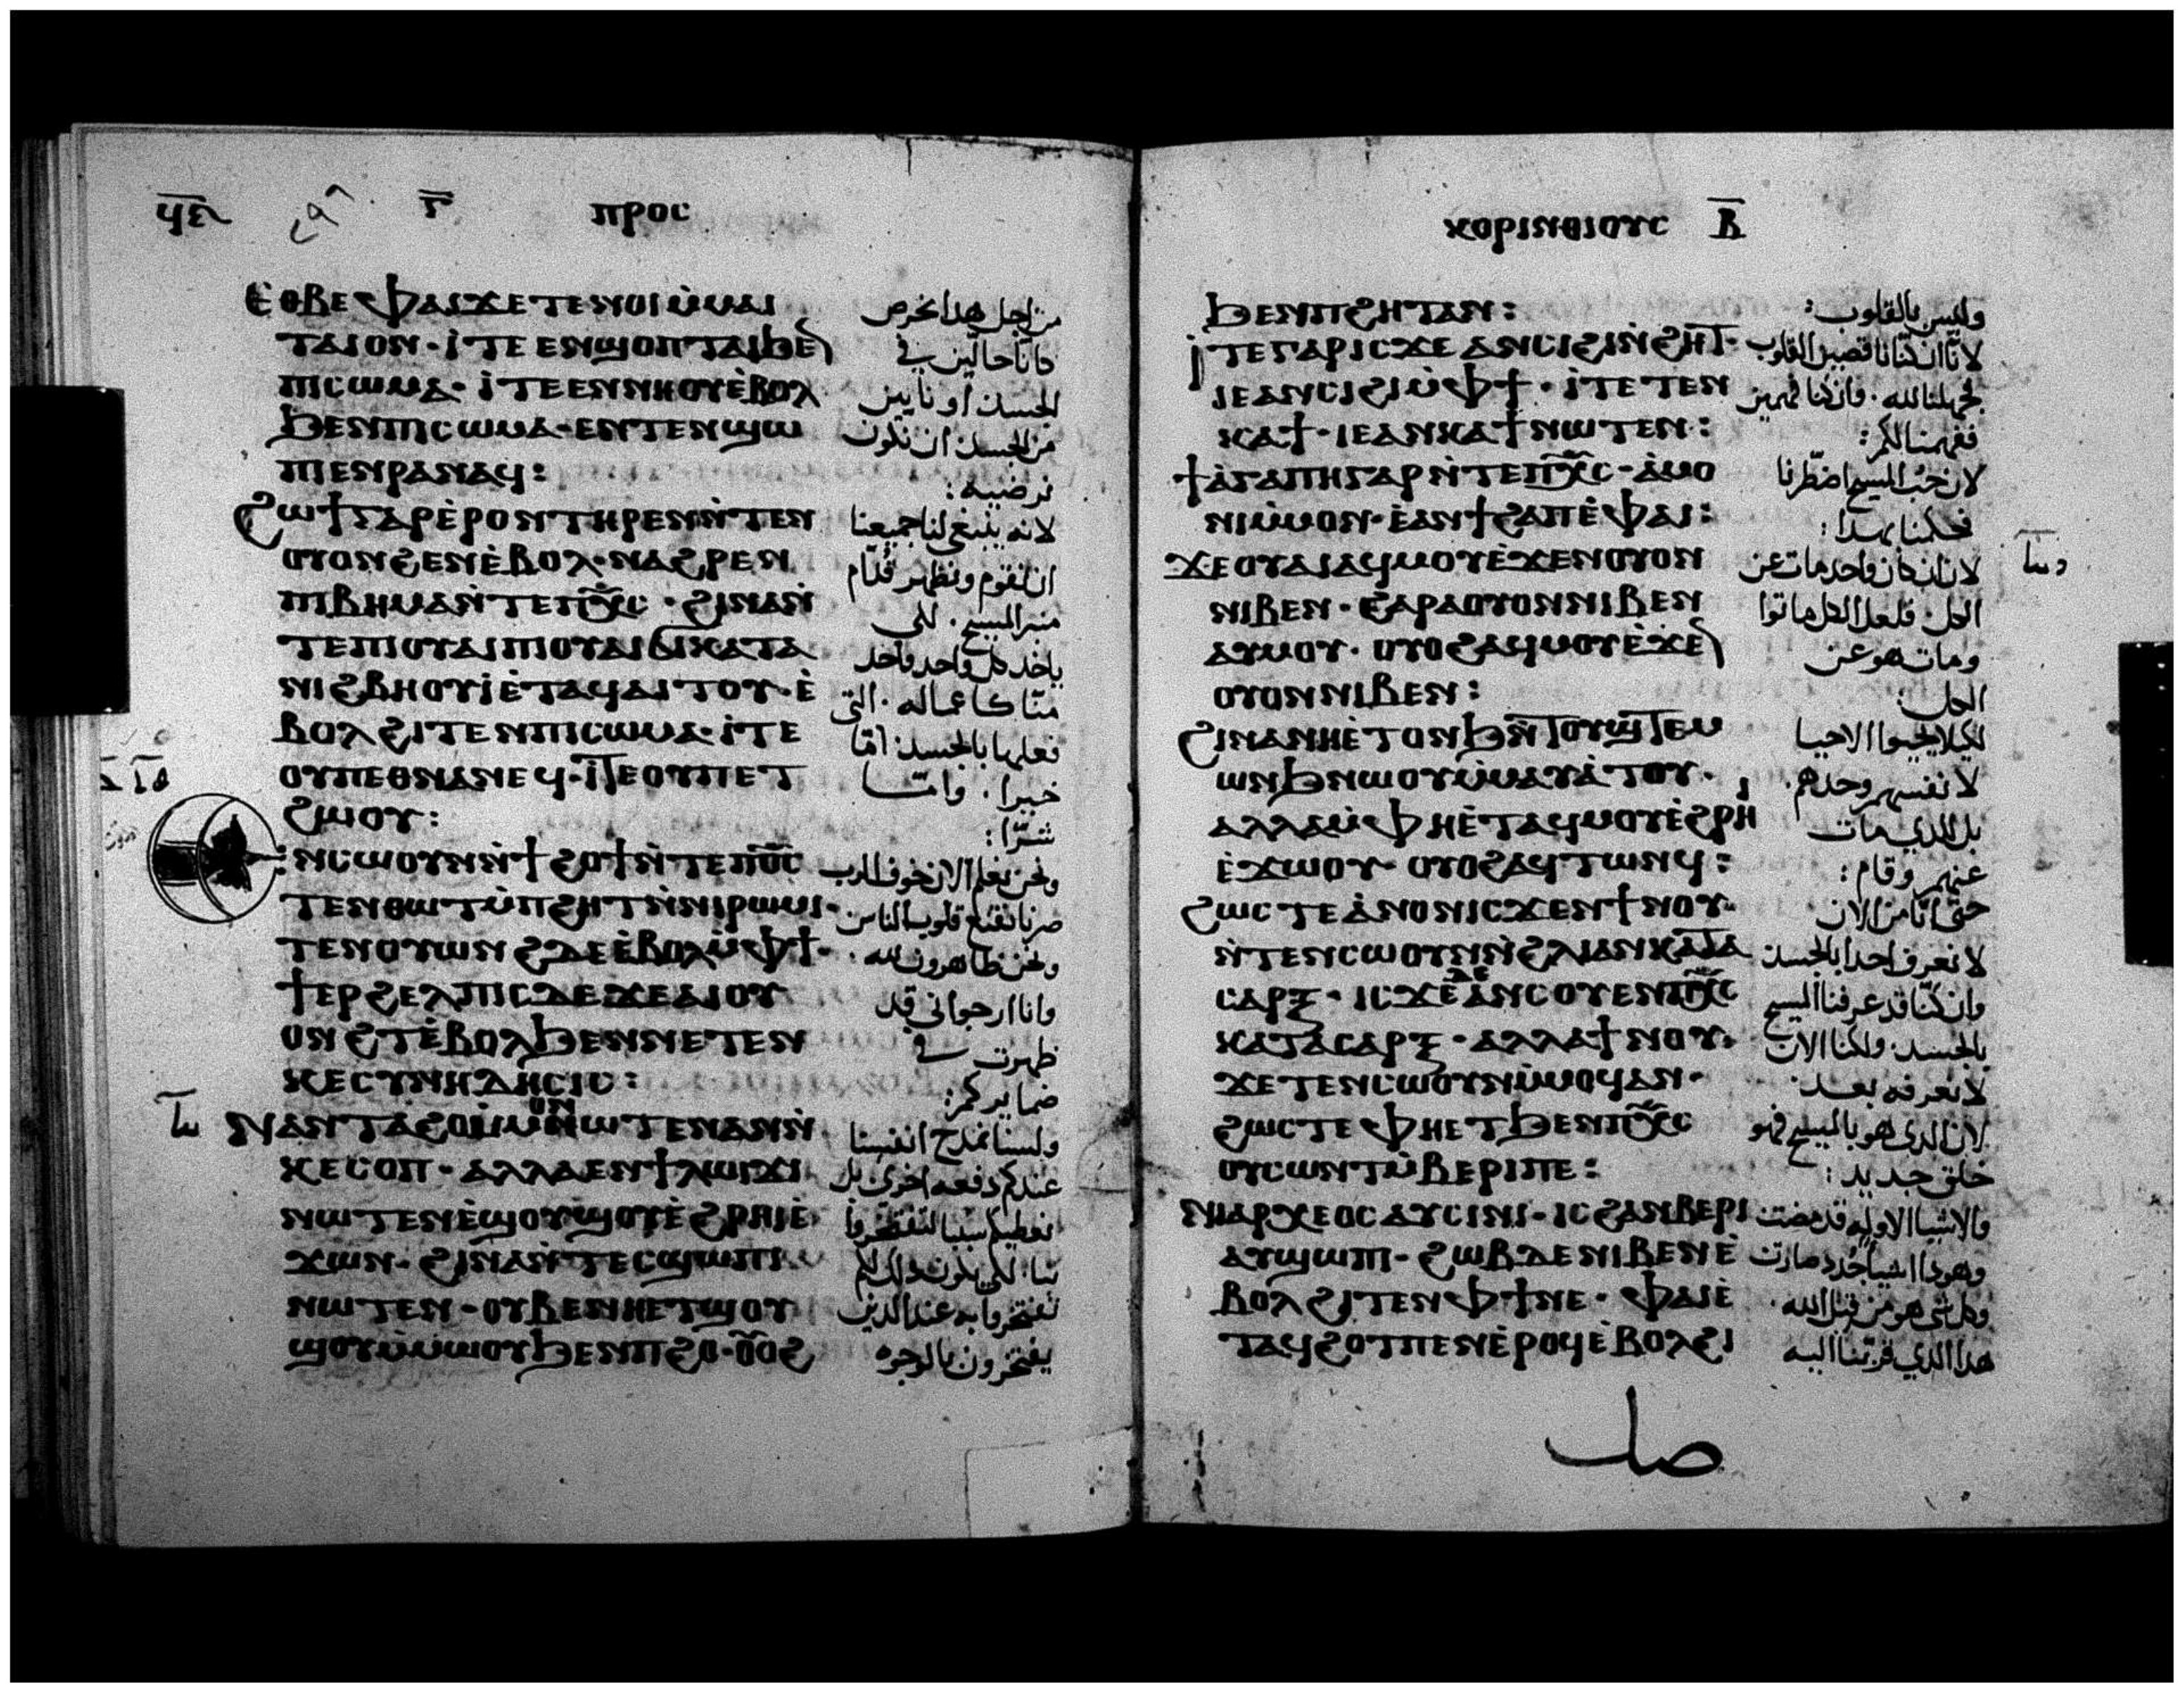 ϥⲉ ⲅ ⲡⲣⲟⲥ
ⲉⲑⲃⲉⲫⲁⲓϫⲉⲧⲉⲛⲟⲓⲙ̀ⲙⲁⲓ
ⲧⲁⲓⲟⲛ · ⲓ̀ⲧⲉⲉⲛϣⲟⲡⲧⲁⲓϧⲉ
ⲡⲓⲥⲱⲙⲁ · ⲓ̀ⲧⲉⲉⲛⲛⲏⲟⲩⲉ̀ⲃⲟⲗ
ϧⲉⲛⲡⲓⲥⲱⲙⲁ · ⲉⲛⲧⲉⲛϣⲱ
ⲡⲓⲉⲛⲣⲁⲛⲁϥ :
ϩⲱϯⲅⲁⲣⲉ̀ⲣⲟⲛⲧⲏⲣⲉⲛⲛ̀ⲧⲉⲛ
ⲟⲩⲟⲛϩⲉⲛⲉ̀ⲃⲟⲗ · ⲛⲁϩⲣⲉⲛ
ⲡⲓⲃⲏⲙⲁⲛ̀ⲧⲉⲡⲭ̅ⲥ · ϩⲓⲛⲁⲛ̀
ⲧⲉⲡⲓⲟⲩⲁⲓⲡⲓⲟⲩⲁⲓϭⲓⲕⲁⲧⲁ
ⲛⲓϩⲃⲏⲟⲩⲓ̀ⲉ̀ⲧⲁϥⲁⲓⲧⲟⲩ · ⲉ̀
ⲃⲟⲗϩⲓⲧⲉⲛⲡⲓⲥⲱⲙⲁ · ⲓ̀ⲧⲉ
ⲟⲩⲡⲉⲑⲛⲁⲛⲉϥ · ⲓ̀ⲧⲉⲟⲩⲡⲉⲧ
ϩⲱⲟⲩ :
ⲉⲛⲥⲱⲟⲩⲛⲛ̀ϯϩⲟϯⲛ̀ⲧⲉⲡⲟ̅ⲥ
ⲧⲉⲛⲑⲱⲧⲙ̀ⲡϩⲏⲧⲛ̀ⲛⲓⲣⲱⲙⲓ ·
ⲧⲉⲛⲟⲩⲱⲛϩⲇⲉⲉ̀ⲃⲟⲗⲙ̀ⲫϯ ·
ϯⲉⲣϩⲉⲗⲡⲓⲥⲇⲉϫⲉⲁⲓⲟⲩ
ⲟⲛϩⲧⲉ̀ⲃⲟⲗϧⲉⲛⲛⲉⲧⲉⲛ
ⲕⲉⲥⲩⲛⲏⲇⲏⲥⲓⲥ :
ⲛⲁⲛⲧⲁϩⲟⲙ̀ⲙⲟⲛⲛⲱⲧⲉⲛⲁⲛⲛ̀
ⲕⲉⲥⲟⲡ · ⲁⲗⲗⲁⲉⲛϯⲗⲱⲓϫⲓ
ⲛⲱⲧⲉⲛⲉ̀ϣⲟⲩϣⲟⲩⲉ̀ϩⲣⲏⲓⲉ̀
ϫⲱⲛ · ϩⲓⲛⲁⲛ̀ⲧⲉⲥϣⲱⲡⲓ
ⲛⲱⲧⲉⲛ · ⲟⲩⲃⲉⲛⲏⲉⲧϣⲟⲩ
ϣⲟⲩⲙ̀ⲙⲱⲟⲩϧⲉⲛⲡϩⲟ · ⲟⲩⲟϩ
من اجل هذا نحرص
كانا حالين في
الجسد او نايين
من الجسد ان نكون
نرضيه :
لانه ينبغي لنا جميعنا
ان نقوم ونظهر قدام
منبر المسيح · لكي
ياخد كل واحد واحد
منا كاعماله · التي
فعلها بالجسد اما
خيرا · واما
شرا :
ونحن نعلم الان خوف الرب
صرنا نقنع قلوب الناس
ونحن ظاهرون لله ·
وانا ارجوا اني قد
ظهرت في
ضمايركم :
ولسنا نمدح انفسنا
عندكم دفعه اخرى بل
نعطيكم سببا لتفتخروا
بنا · لكي يكون دلك لكم
تفتخروا به عند الدين
يفتخرون بالوجوه
ⲕⲟⲣⲓⲛⲑⲓⲟⲩⲥ ⲃ
ϧⲉⲛⲡϩⲏⲧⲁⲛ :
ⲓ̀ⲧⲉⲅⲁⲣⲓⲥϫⲉⲁⲛⲥⲓϩⲓⲛ̀ϩⲏⲧ ·
ⲓⲉⲁⲛⲥⲓϩⲓⲙ̀ⲫϯ · ⲓ̀ⲧⲉⲧⲉⲛ
ⲕⲁϯ · ⲓⲉⲁⲛⲕⲁϯⲛⲱⲧⲉⲛ :
ϯⲁ̀ⲅⲁⲡⲏⲅⲁⲣⲛ̀ⲧⲉⲡⲭ̅ⲥ · ⲁ̀ⲙⲟ
ⲛⲓⲙ̀ⲙⲟⲛ · ⲉ̀ⲁⲛϯϩⲁⲡⲉ̀ⲫⲁⲓ :
ϫⲉⲟⲩⲁⲓⲁϥⲙⲟⲩⲉ̀ϫⲉⲛⲟⲩⲟⲛ
ⲛⲓⲃⲉⲛ · ϩⲁⲣⲁⲟⲩⲟⲛⲛⲓⲃⲉⲛ
ⲁⲩⲙⲟⲩ · ⲟⲩⲟϩⲁϥⲙⲟⲩⲉ̀ϫⲉ
ⲟⲩⲟⲛⲛⲓⲃⲉⲛ :
ϩⲓⲛⲁⲛⲏⲉ̀ⲧⲟⲛϧⲛ̀ⲧⲟⲩϣⲧⲉⲙ
ⲱⲛϧⲛⲱⲟⲩⲙ̀ⲙⲁⲩⲁ̀ⲧⲟⲩ ·
ⲁⲗⲗⲁⲙ̀ⲫⲏⲉ̀ⲧⲁϥⲙⲟⲩⲉ̀ϩⲣⲏⲓ
ⲉ̀ϫⲱⲟⲩ · ⲟⲩⲟϩⲁϥⲧⲱⲛϥ :
ϩⲱⲥⲧⲉⲁ̀ⲛⲟⲛⲓⲥϫⲉⲛϯⲛⲟⲩ ·
ⲛ̀ⲧⲉⲛⲥⲱⲟⲩⲛⲛ̀ϩⲗⲓⲁⲛⲕⲁⲧⲁ
ⲥⲁⲣⲝ · ⲓⲥϫⲉⲇⲉⲁⲛⲥⲟⲩⲉⲛⲡⲭ̅ⲥ
ⲕⲁⲧⲁⲥⲁⲣⲝ · ⲁⲗⲗⲁϯⲛⲟⲩ ·
ϫⲉⲧⲉⲛⲥⲱⲟⲩⲛⲙ̀ⲙⲟϥⲁⲛ ·
ϩⲱⲥⲧⲉⲫⲏⲉⲧϧⲉⲛⲡⲭ̅ⲥ
ⲟⲩⲥⲱⲛⲧⲙ̀ⲃⲉⲣⲓⲡⲉ :
ⲛⲓⲁⲣⲭⲉⲟⲥⲁⲩⲥⲓⲛⲓ · ⲓⲥϩⲁⲛⲃⲉⲣⲓ
ⲁⲩϣⲱⲡⲓ · ϩⲱⲃⲇⲉⲛⲓⲃⲉⲛⲉ̀
ⲃⲟⲗϩⲓⲧⲉⲛⲫϯⲛⲉ · ⲫⲁⲓⲉ̀
ⲧⲁϥϩⲟⲧⲡⲉⲛⲉ̀ⲣⲟϥⲉ̀ⲃⲟⲗϩⲓ
وليس بالقلوب :
لانا ان كنا ناقصين القلوب
فجهلنا لله · وان كنا فهمين
ففهمنا لكم :
لان حب المسيح اضطرنا
فحكمنا بهدا :
لان ان كان واحد مات عن
الكل · فلعل الكل ماتوا
ومات هو عن
الكل :
لكيلا يحيوا الاحيا
لانفسهم وحدهم ·
بل للدي مات
عنهم وقام :
حتى انا من الان
لا نعرف احدا بالجسد
وان كنا قد عرفنا المسيح
بالجسد · ولكنا الان
لا نعرفه بعد
لان الدي هو بالمسيح فهو
خلق جديد :
والاشيا الاوليه قد مضت
وهودا اشيا جدد صارت
وكل شي هو من قبل الله ·
هدا الدي قربنا اليه